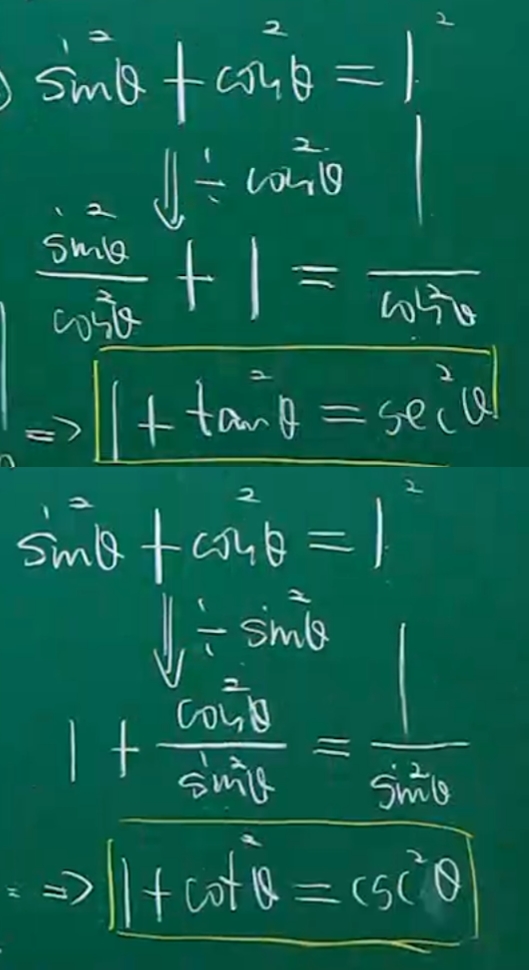 sin²θ + cos²θ = 1²
⇓ ÷ cos²θ
sin²θ/cos²θ + 1 = 1/cos²θ
=> 1 + tan²θ = sec²θ
sin²θ + cos²θ = 1²
⇓ ÷ sin²θ
1 + cos²θ/sin²θ = 1/sin²θ
=> 1 + cot²θ = csc²θ